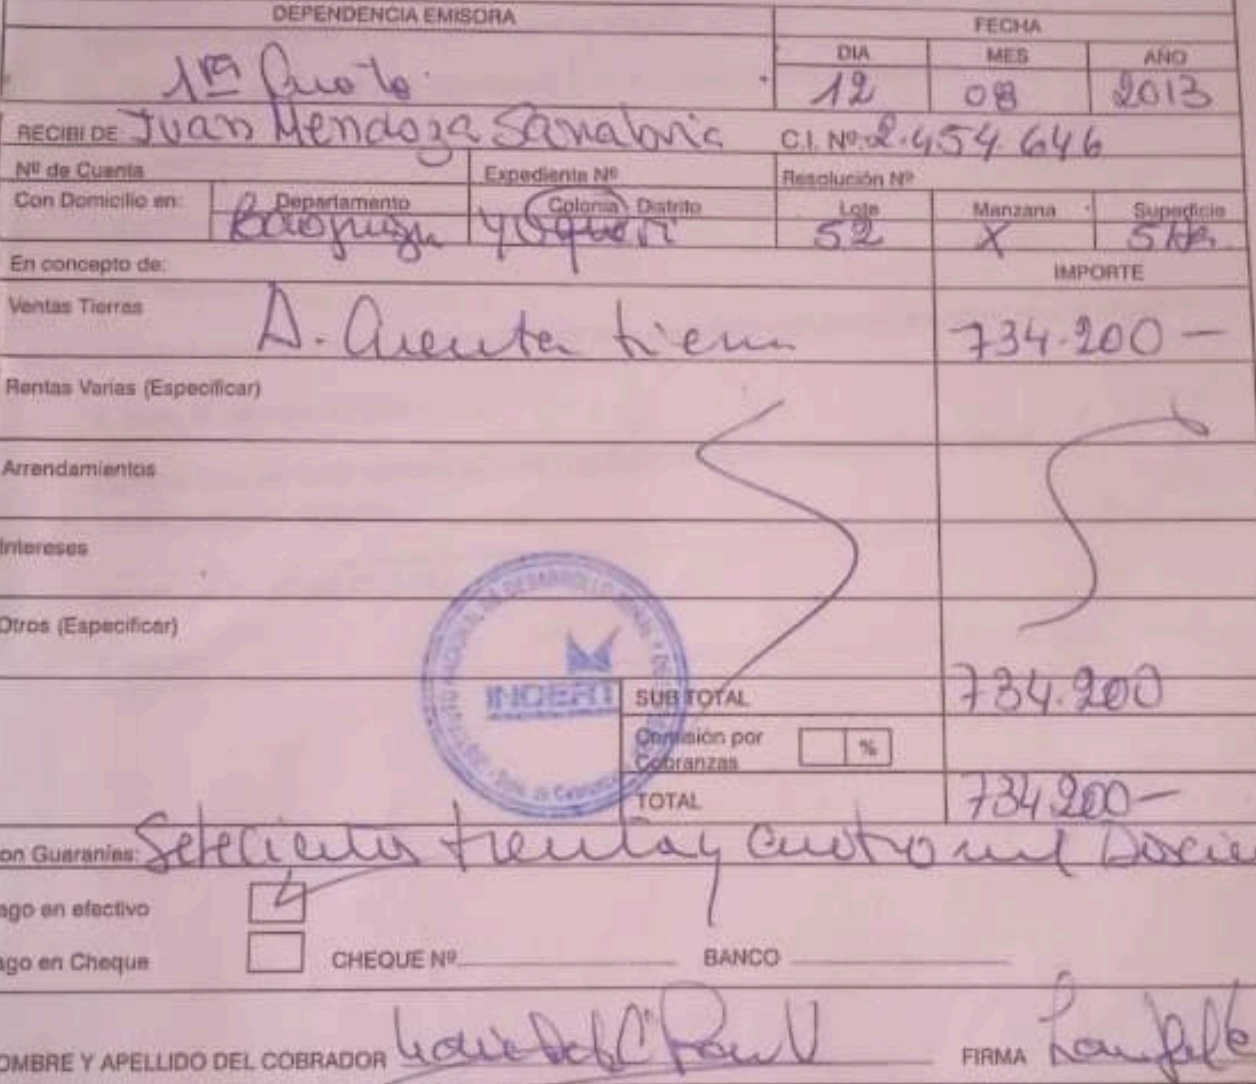 DEPENDENCIA EMISORA
FECHA
DIA MES AÑO
1ra Cuota
12 08 2013
RECIBI DE Juan Mendoza Sanabria C.I. Nº 2.454.646
Nº de Cuenta Expediente Nº Resolución Nº
Con Domicilio en: Departamento Colonia Distrito Lote Manzana Superficie
Caaguazu 52 X 5 Has
En concepto de: IMPORTE
Ventas Tierras A. Cuenta tierra 734.200 —
Rentas Varias (Especificar)
Arrendamientos
Intereses
Otros (Especificar)
INDERT
SUB TOTAL 734.200
Comisión por Cobranzas %
TOTAL 734.200 —
on Guaraníes: Setecientos treinta y cuatro mil Doscie
ago en efectivo
ago en Cheque CHEQUE Nº BANCO
OMBRE Y APELLIDO DEL COBRADOR FIRMA